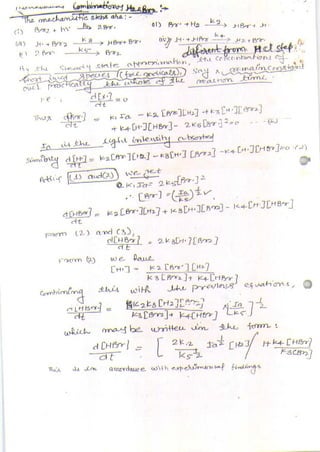 Combination of H₂ & Br₂ :-
The mechanistic steps are :-
(i) Br₂ + hν → 2Br·
(ii) Br· + H₂ —k₂→ HBr + H·
(iii) H· + Br₂ —k₃→ HBr + Br·
(iv) H· + HBr —k₄→ H₂ + Br·
2Br· —k₅→ Br₂
different from HCl step:
the steady state approximation, the concentrations of
species (free radicals), say remain constant
practically the whole of the reaction time.
i.e., d[·]/dt = 0
Thus d[Br·]/dt = K₁Ia - K₂[Br·][H₂] + K₃[H·][Br₂]
+ K₄[H·][HBr] - 2K₅[Br·]² = 0
Ia is the light intensity absorbed
Similarly d[H·]/dt = K₂[Br·][H₂] - K₃[H·][Br₂] - K₄[H·][HBr] = 0
Adding (1) and (2) we get
K₁Ia = 2K₅[Br·]²
∴ [Br·] =
d[HBr]/dt = K₂[Br·][H₂] + K₃[H·][Br₂] - K₄[H·][HBr]
From (2) and (3),
d[HBr]/dt = 2K₃[H·][Br₂]
From (2) we have
[H·] = K₂[Br·][H₂] / K₃[Br₂] + K₄[HBr]
Combining this with the previous equations,
d[HBr]/dt = K₂K₃[H₂][Br₂] / K₃[Br₂] + K₄[HBr] [Ia/K₅]^½
which may be written in the form :
d[HBr]/dt = [2K₂/K₅^½ Ia^½ [H₂] / 1 + K₄[HBr]/K₃[Br₂]
This is in accordance with experimental findings